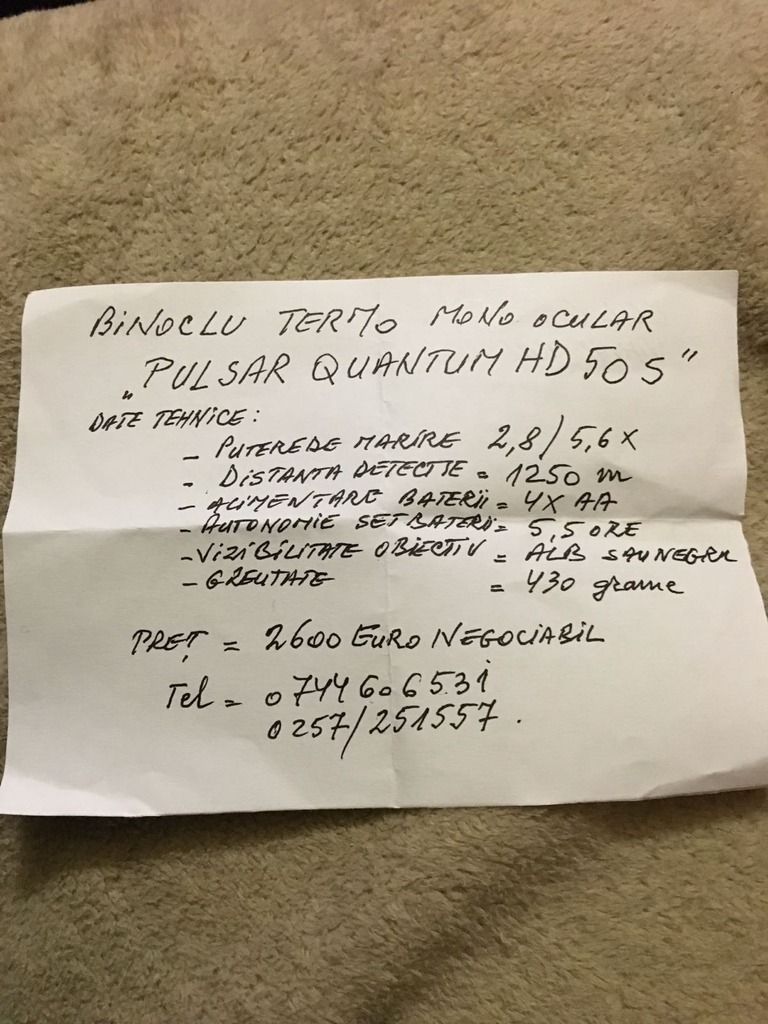 BINOCLU TERMO MONO OCULAR
„PULSAR QUANTUM HD 50 S"
DATE TEHNICE:
- PUTERE DE MARIRE 2,8/5,6 X
- DISTANTA DETECTIE = 1250 m
- ALIMENTARE BATERII = 4X AA
- AUTONOMIE SET BATERII = 5,5 ORE
- VIZIBILITATE OBIECTIV = ALB SAU NEGRU
- GREUTATE = 430 grame
PREȚ = 2600 EURO NEGOCIABIL
Tel = 0744 606531
0257/251557.